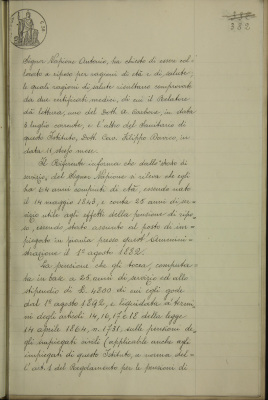 332
Signor Napione Onorario, ha chiesto di essere col-
locato a riposo per ragioni di età e di salute,
le quali ragioni di salute risultano comprovate
da due certificati medici, di cui il Relatore
dà lettura, uno del Dott. A. Carbone, in data
luglio corrente, e l'altro del Sanitario di
questo Istituto, Dott. Cav. Filippo
data 11, stesso mese.
Il Riferente informa che dallo Stato di
servizio, del Signor Napione si rileva che egli
ha 64 anni compiuti di età, essendo nato
il 14 maggio 1843, e conta 25 anni di ser-
vizio utile agli effetti della pensione di ripo-
so, essendo stato assunto al posto di im-
piegato in pianta presso quest' Ammini-
strazione il 1º agosto 1882.
La pensione che gli tocca, computa-
ta in base a 25 anni di servizio ed allo
stipendio di L. 4200 di cui egli gode
dal 1º agosto 1892, e liquidata a termi-
ni degli articoli 14, 16, 17 e 18 della legge
14 aprile 1864, n. 1731, sulle pensioni de-
gli impiegati civili (applicabile anche agli
impiegati di questo Istituto, a norma del-
l'art. del Regolamento per le pensioni di